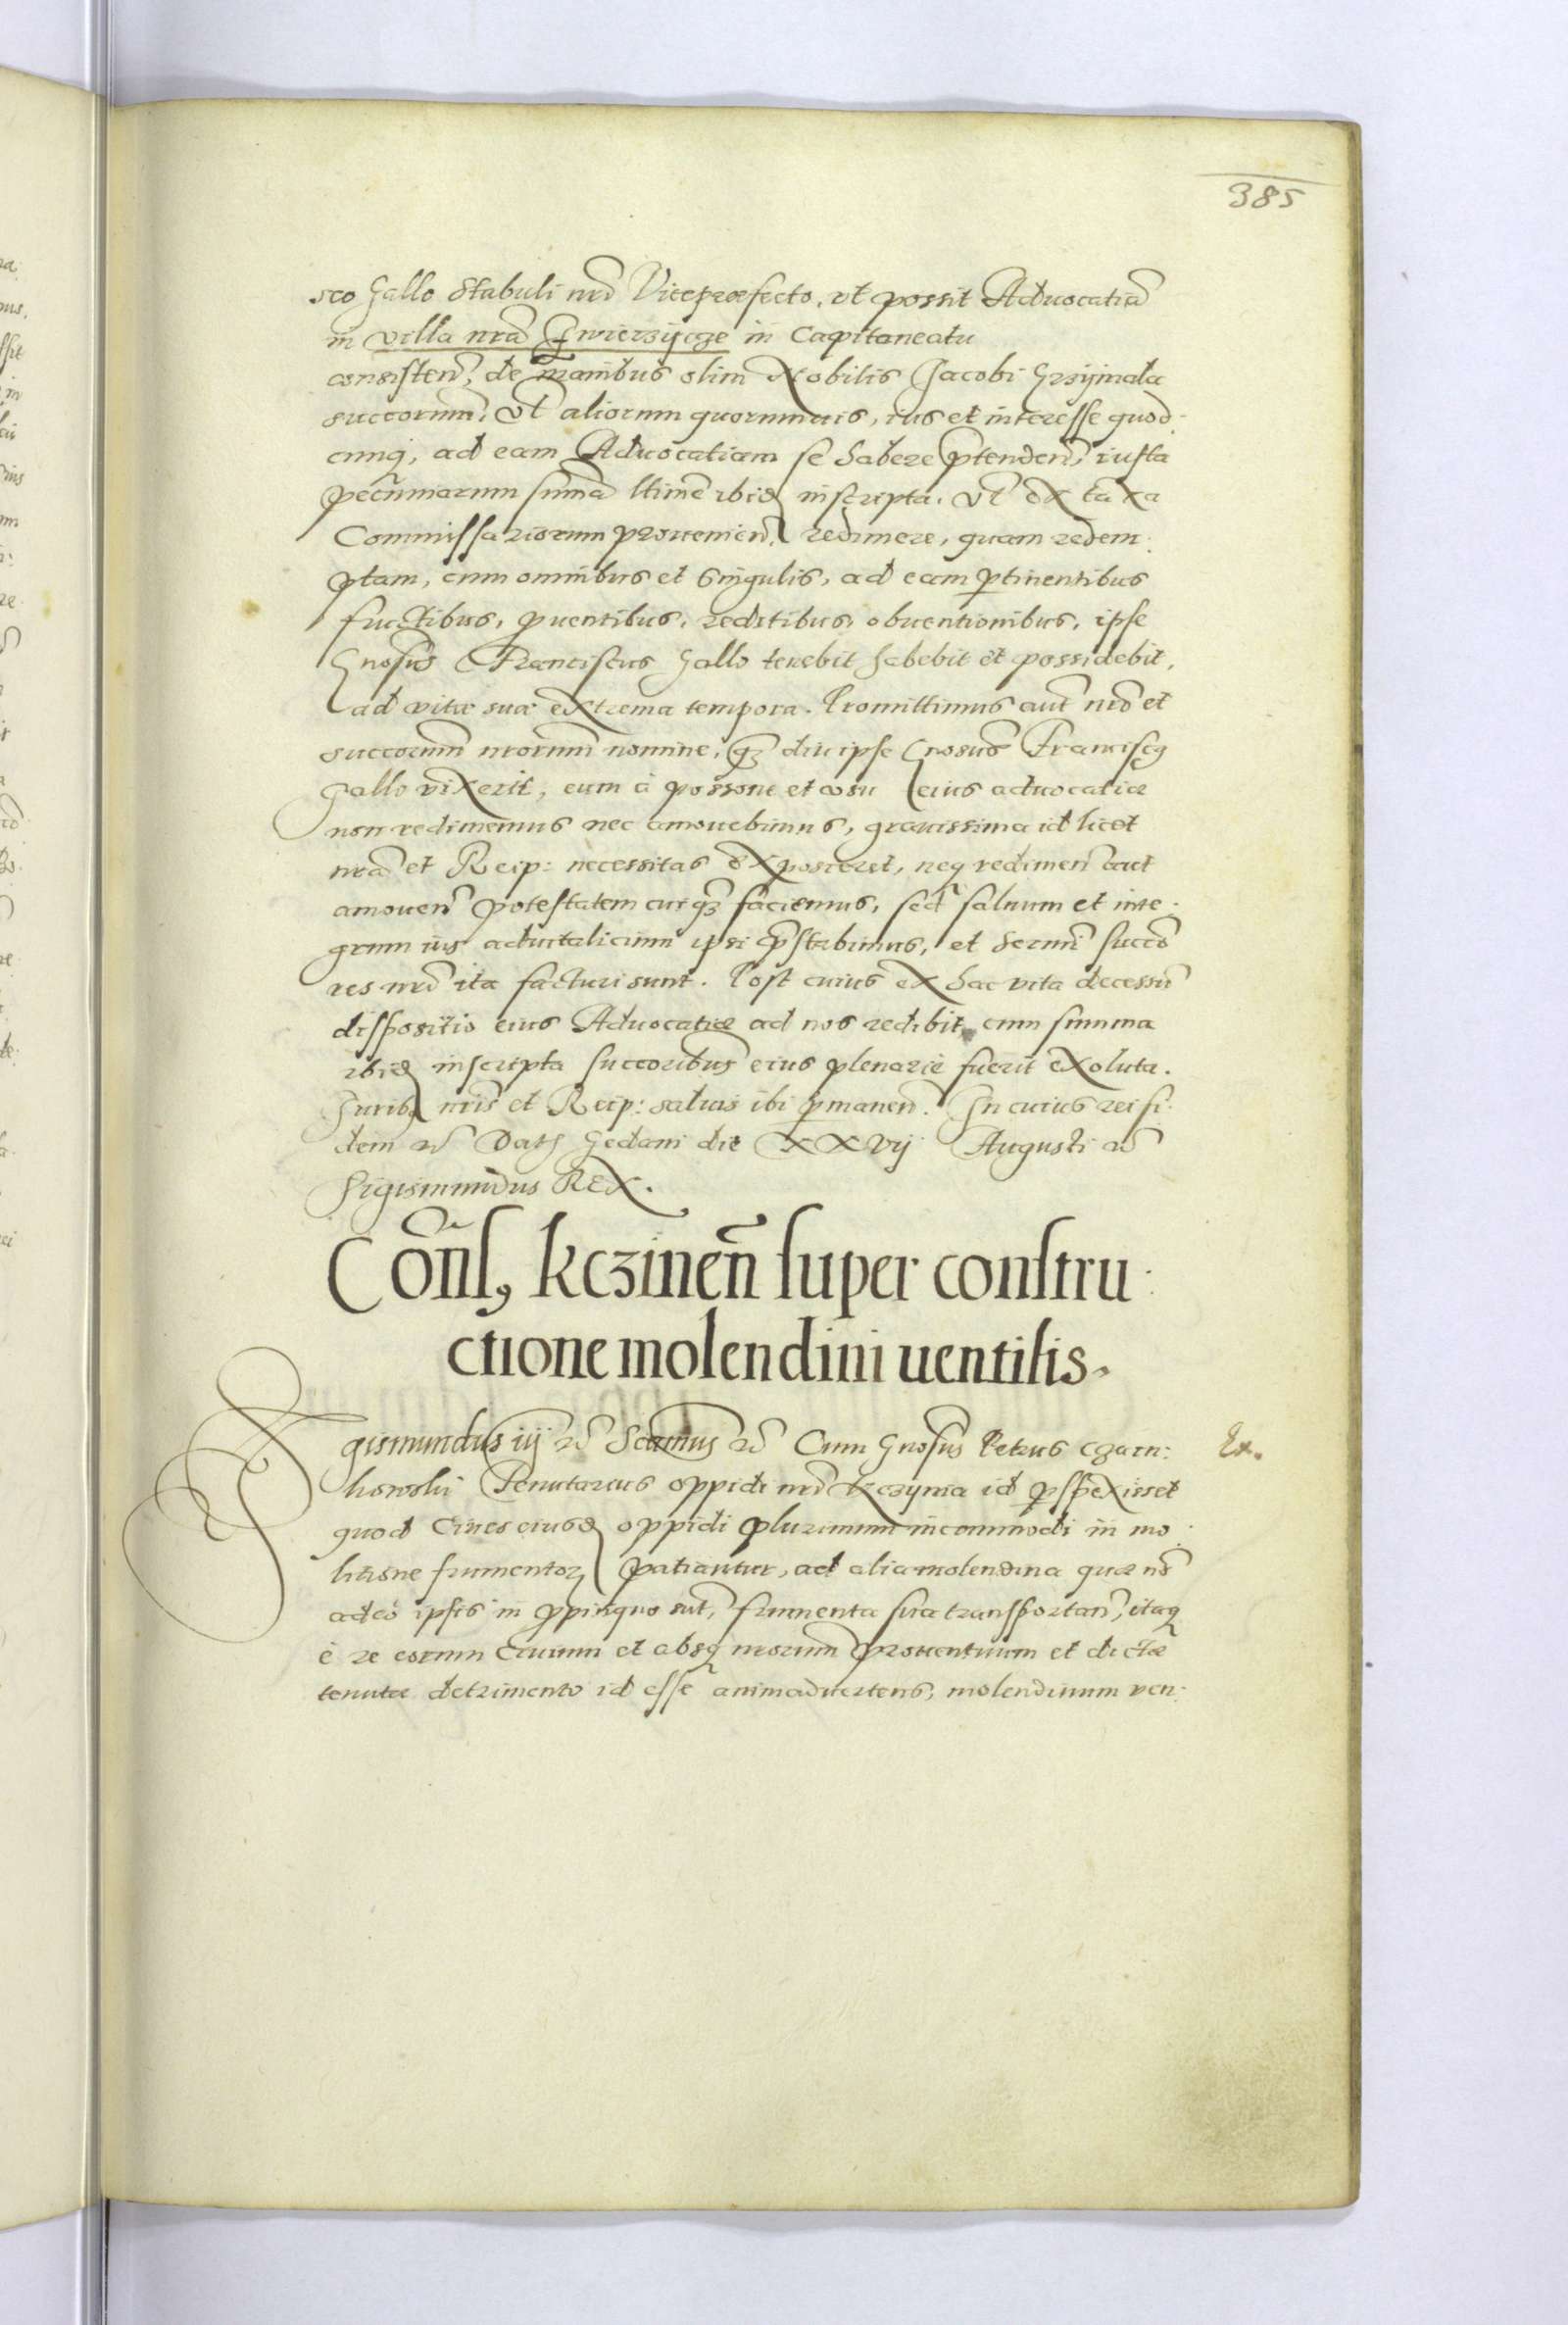 385
sco Gallo Stabuli nrō Vicepræfecto, ut possit Advocatiā
in villa nrā Zwierzijcze in Capitaneatu
consisteñ, de manibus olim Nobilis Jacobi Grzijmala
succorum, vl aliorum quorumvis, ius et interesse quod
cunq, ad eam Advocatiam se habere ptendeñ, iusta
pecuniarum summa ltime ibid inscripta, vl ex taxa
Commissariorum provenieñ, redimere, quam redem:
ptam, cum omnibus et singulis, ad eam ptinentibus
fructibus, pventibus, reditibus, obventionibus, ipse
Gnosus Franciscus Gallo tenebit habebit et possidebit,
ad vitæ suæ extrema tempora. Promittimus aut nrō et
succorum nrorum nomine, qz diu ipse Gnosus Franciscq
Gallo vixerit, eum à possone et vsu eius advocatiæ
non redimemus nec amovebimus, gravissima id licet
nrā et Reip: necessitas exposceret, neq redimeñ aut
amoveñ potestatem cuiqz faciemus, sed salvum et inte:
grum ius advitalicium ipsi pstabimus, et Sermi succo
res nrī ita facturi sunt. Post cuius ex hac vita decessū
dispositio eius Advocatiæ ad nos redibit, cum summa
ibid inscripta succoribus eius plenarie fuerit exoluta.
Jurib nris et Reip: salvis ibi pmaneñ. In cuius rei fi:
dem etc Dats Gedani die XXVij Augusti etc
Sigismundus REX.
Cōns, kczineñ super constru:
ctione molendini uentilis.
Sigismundus iij etc Scamus etc Cum Gnosus Petrus Czarn: Ex.
kowski Tenutarius oppidi nrī Kczynia id pspexisset
quod Cives eiusd oppidi plurimum incommodi in mo:
litione frumentor patiantur, ad alia molendina quæ nō
adeo ipsis in ppinquo sut, frumenta sua transportañ, itaq
è re eorum Civium et absq nrorum proventuum et dictæ
tenutæ detrimento id esse animadvertens, molendinum ven: